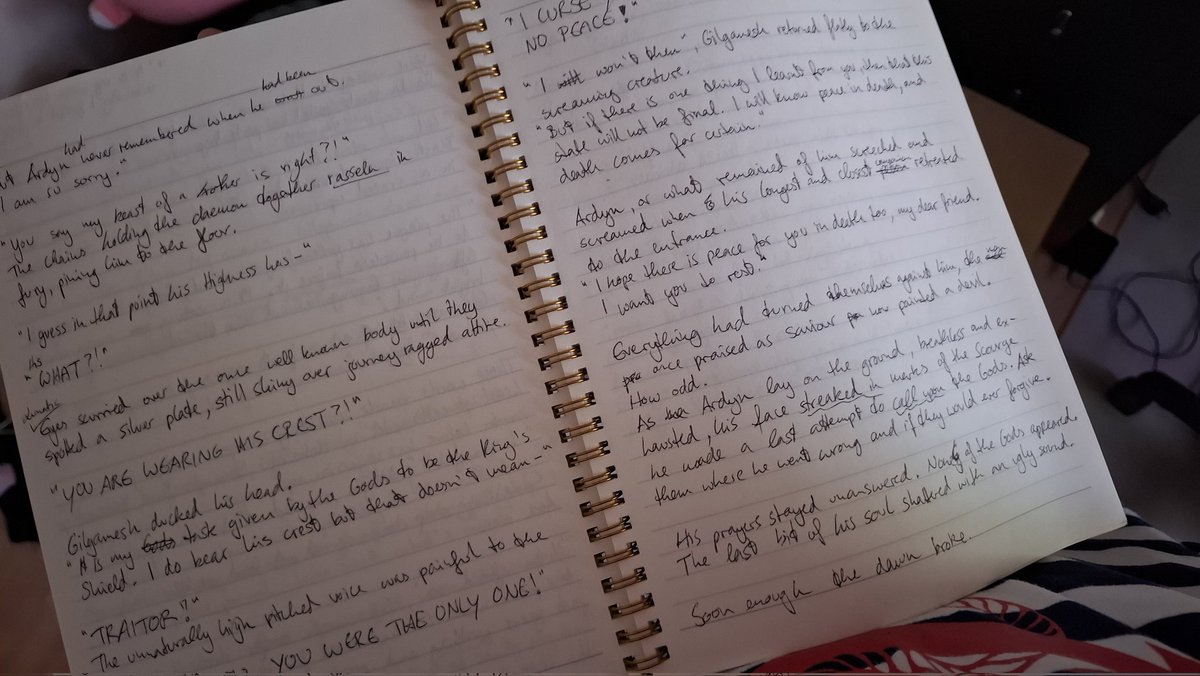 had had been
Ardyn never remembered when he out.
I am so sorry."
"You say my beast of a brother is right?!"
The chains holding the daemon dogather rasseln in
fury, pining him to the floor.
"I guess in that point his Highness has-"
his
"WHAT?!"
Eyes scurried over the once well known body until they
spotted a silver plate, still shiny over journey ragged attire.
"YOU ARE WEARING HIS CREST?!"
Gilgamesh ducked his head.
"It is my task given by the Gods to be the King's
Shield. I do bear his crest but that doesn't mean-"
"TRAITOR!"
The unnaturally high pitched voice was painful to the
YOU WERE THE ONLY ONE!"
"I CURSE
NO PEACE!"
"I won't then", Gilgamesh returned flatly to the
screaming creature.
"But if there is one thing I learnt from you, then that this
state will not be final. I will know peace in death, and
death comes for certain."
Ardyn, or what remained of him screeched and
screamed when his longest and closest companion retreated
to the entrance.
"I hope there is peace for you in death too, my dear friend.
I want you to rest."
Everything had turned themselves against him, the
once praised as saviour now painted a devil.
How odd.
As Ardyn lay on the ground, breathless and ex-
hausted, his face streaked in marks of the Scourge
he made a last attempt to call upon the Gods. Ask
them where he went wrong and if they would ever forgive.
His prayers stayed unanswered. None of the Gods appeared.
The last bit of his soul shattered with an ugly sound.
Soon enough the dawn broke.